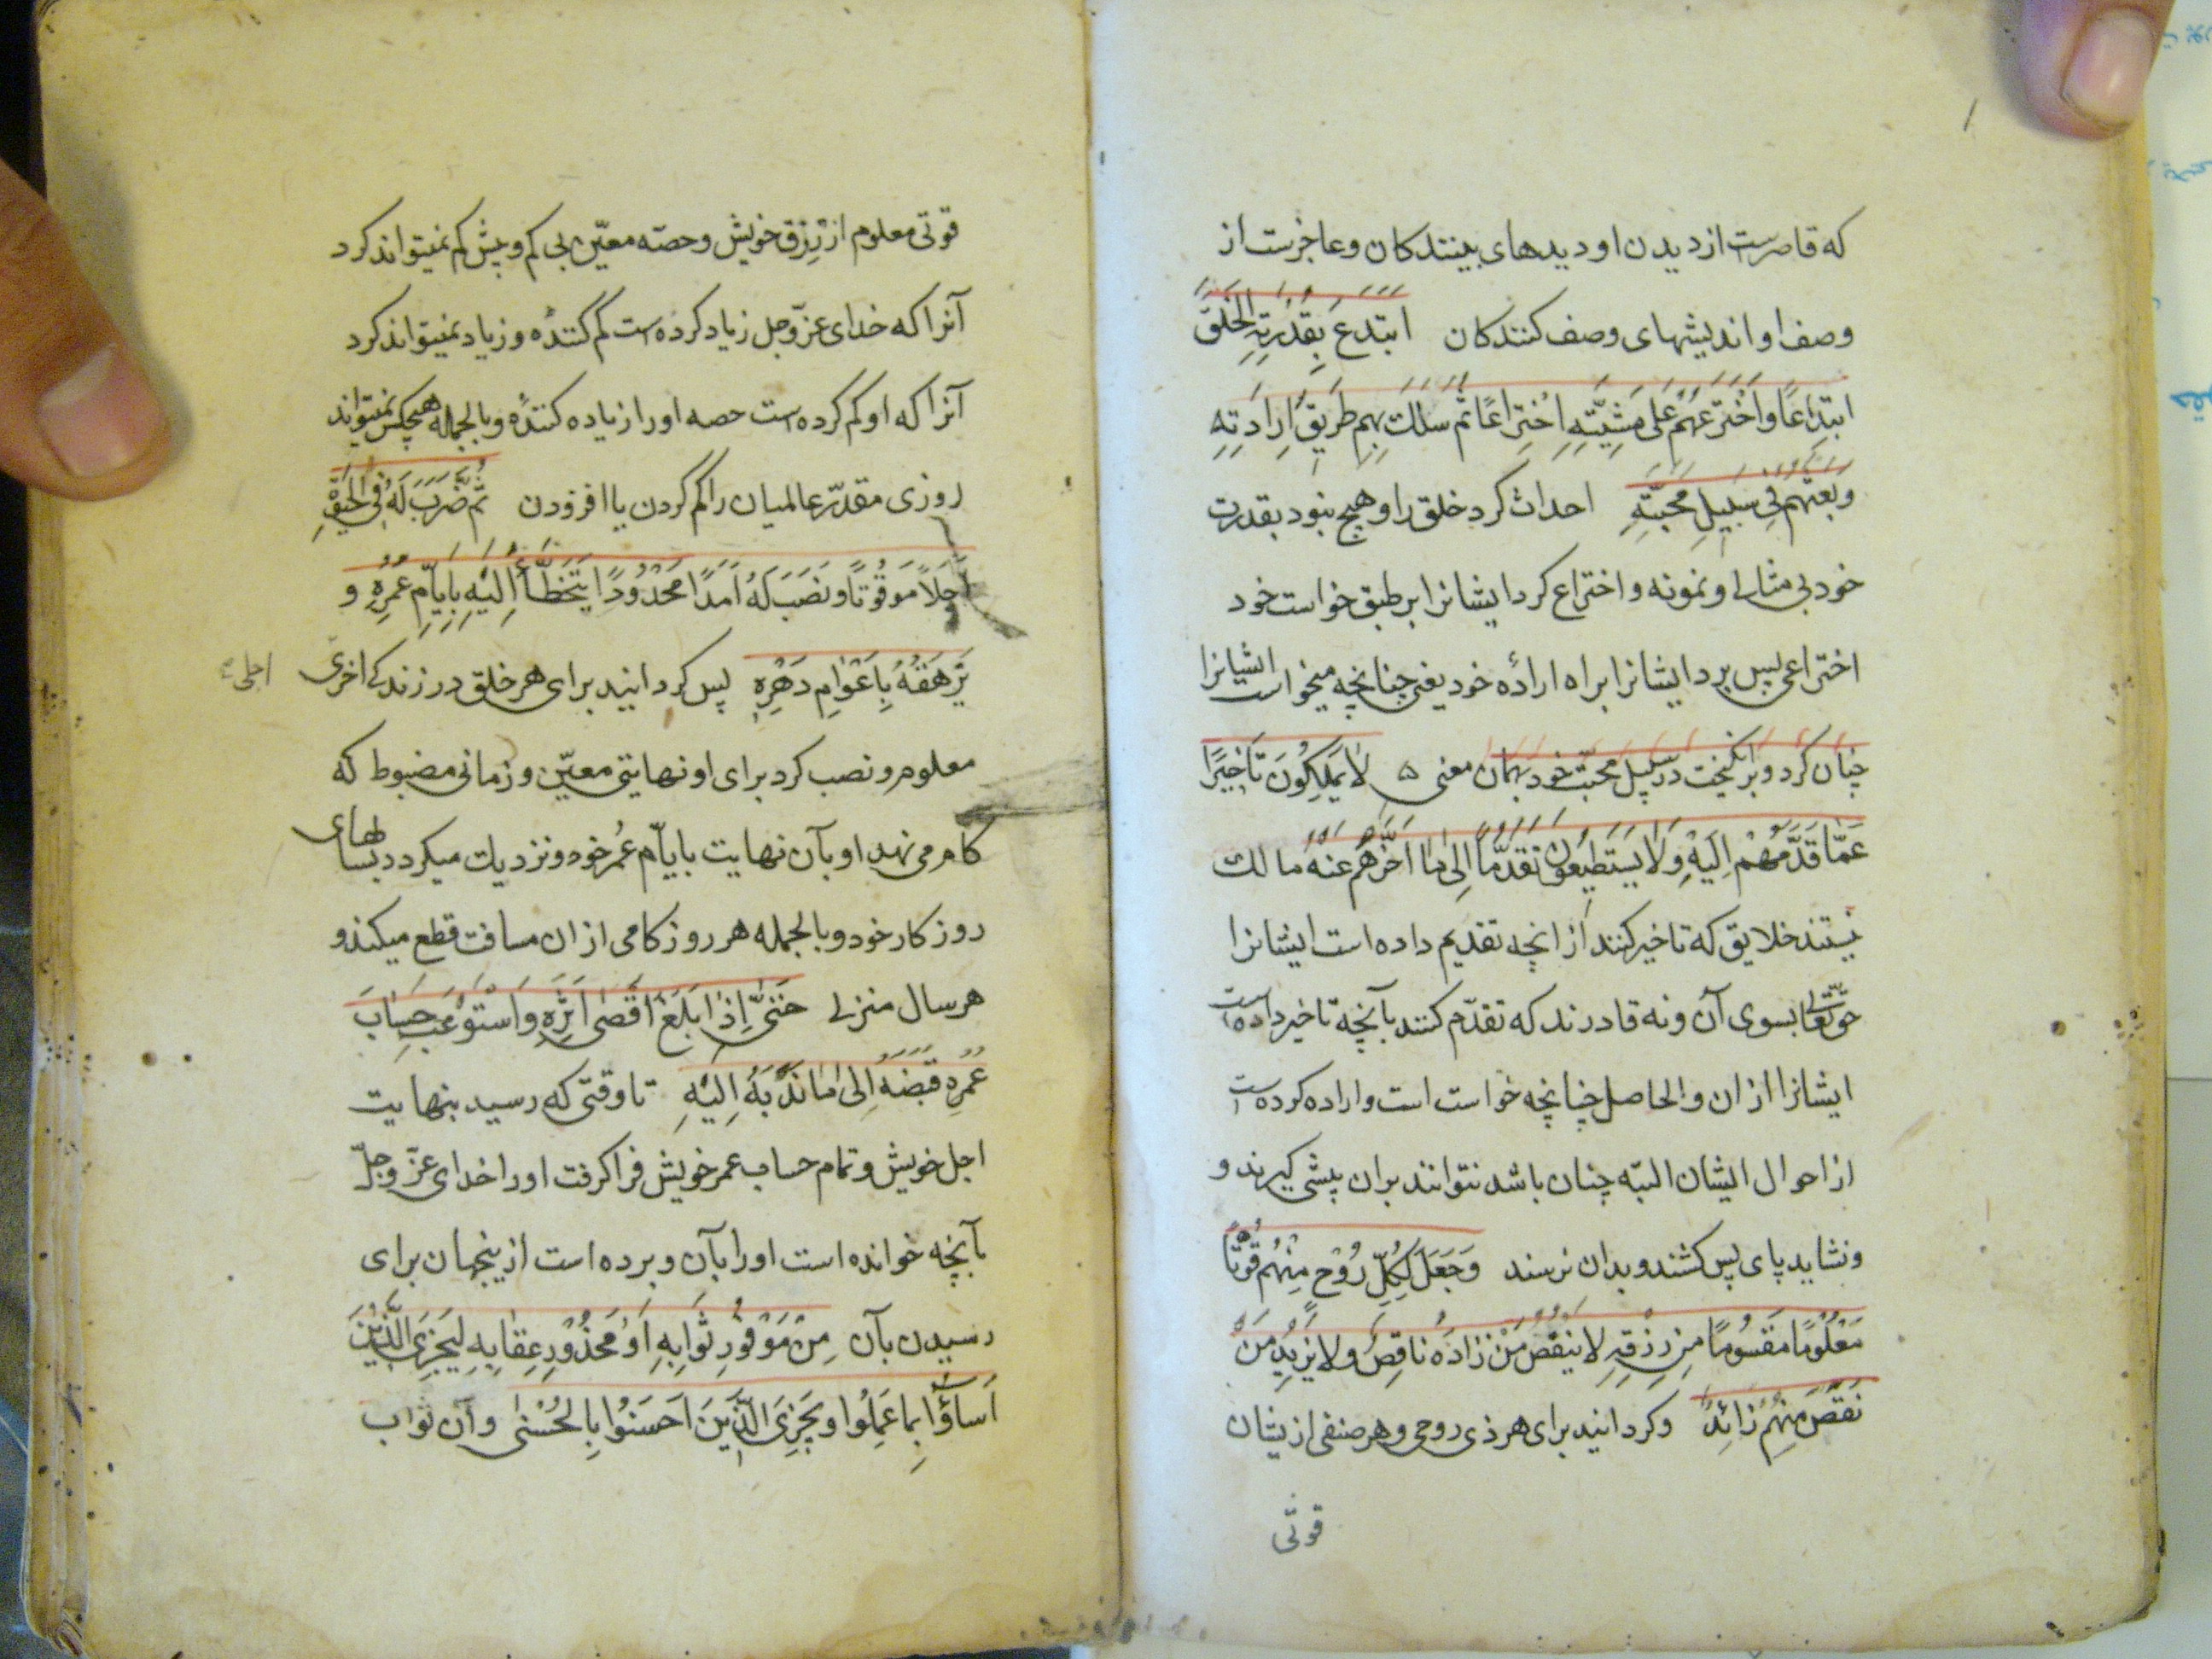 که قاصرست از دیدن او دیدهای بینندکان و عاجزست از
وصف او اندیشهای وصف کنندکان ابتدع بِقُدْرَتِهِ الخَلقَ
ابتِداعًا و اَختَرعَهُم عَلی مَشِیَّتِهِ اختِراعًا ثُم سَلَکَ بِهِم طَریقَ اِرادَتِهِ
وبَعَثَهُم فی سَبیلِ مَحبَّتِهِ احداث کرد خلق را و هیچ نبود بقدرت
خود بی مثالی و نمونه و اختراع کرد ایشانرا بر طبق خواست خود
اختراعی پس برد ایشانرا براه ارادهٔ خود یعنی چنانچه میخواست ایشانرا
چنان کرد و برانکیخت در سبیل محبّت خود بهمان معنی لا یَملِکُونَ تَاخیرًا
عَمّا قَدَّمَهُم اِلَیْهِ وَلا یَستَطیعُونَ تَقَدُّمًا اِلی ما اَخَّرَهُم عَنهُ مالک
نیستند خلایق که تاخیر کنند از انچه تقدیم داده است ایشانرا
حقتعالی بسوی آن و نه قادرند که تقدّم کنند بآنچه تاخیر داده است
ایشانرا از ان والحاصل چنانچه خواست است و اراده کرده است
از احوال ایشان البتّه چنان باشد نتوانند بران پیشی کیرند و
و نشاید پای پس کشند و بدان نرسند وَجَعَلَ لِکُلِّ رُوْحٍ مِنْهُم قُوتًا
مَعْلُومًا مَقسُومًا مِن رِزْقِهِ لا یَنقُصُ مَنْ زادَهُ ناقِصٌ وَلا یَزیدُ مَنْ
نَقَصَ مِنْهُم زائِدٌ و کردانید برای هر ذی روحی و هر صنفی ازیشان
قوتی
قوتی معلوم از رِزق خویش و حصّه معیّن بی کم و بیش کم نمیتواند کرد
آنرا که خدای عزّوجل زیاد کرده است کم کنندهٔ و زیاد نمیتواند کرد
آنرا که او کم کرده است حصه او را زیاده کنندهٔ و بالجمله هیچکس نمیتواند
روزی مقدّر عالمیان را کم کردن یا افزودن ثُمَّ ضَرَبَ لَهُ فِی الحَیوةِ
اَجَلاً مَوقُوتًا و نَصَبَ لَهُ اَمَدًا مَحْدُودًا یَتَخَطَّأُ اِلَیْهِ بِاَیّامِ عُمُرِهِ و
یَرْهَقُهُ بِاَعْوامِ دَهْرِهِ پس کردانید برای هر خلق در زندکی اخری
اجلی
معلوم و نصب کرد برای او نهایتی معیّن و زمانی مضبوط که
کام می نهد او بآن نهایت بایّام عُمر خود و نزدیک میکردد بسالهای
روزکار خود و بالجمله هر روز کامی از ان مسافت قطع میکند و
هر سال منزلی حَتّیٰ اِذا بَلَغَ اَقصٰی اَثَرِهِ وَاسْتَوْعَبَ حِسابَ
عُمُرِهِ قَبَضَهُ اِلیٰ ما نَدَبَهُ اِلَیْهِ تا وقتی که رسید بنهایت
اجل خویش و تمام حساب عمر خویش فرا کرفت او را خدای عزّ و جلّ
بآنچه خوانده است او را بآن و برده است ازینجهان برای
رسیدن بآن مِنْ مَوْفُورِ ثَوابِهِ اَوْ مَحْذُوْرِ عِقابِهِ لِیَجْزِیَ الَّذیْنَ
اَساؤُا بِما عَمِلُوا و یَجْزِیَ الَّذینَ اَحسَنُوْا بِالحُسْنیٰ و آن ثواب